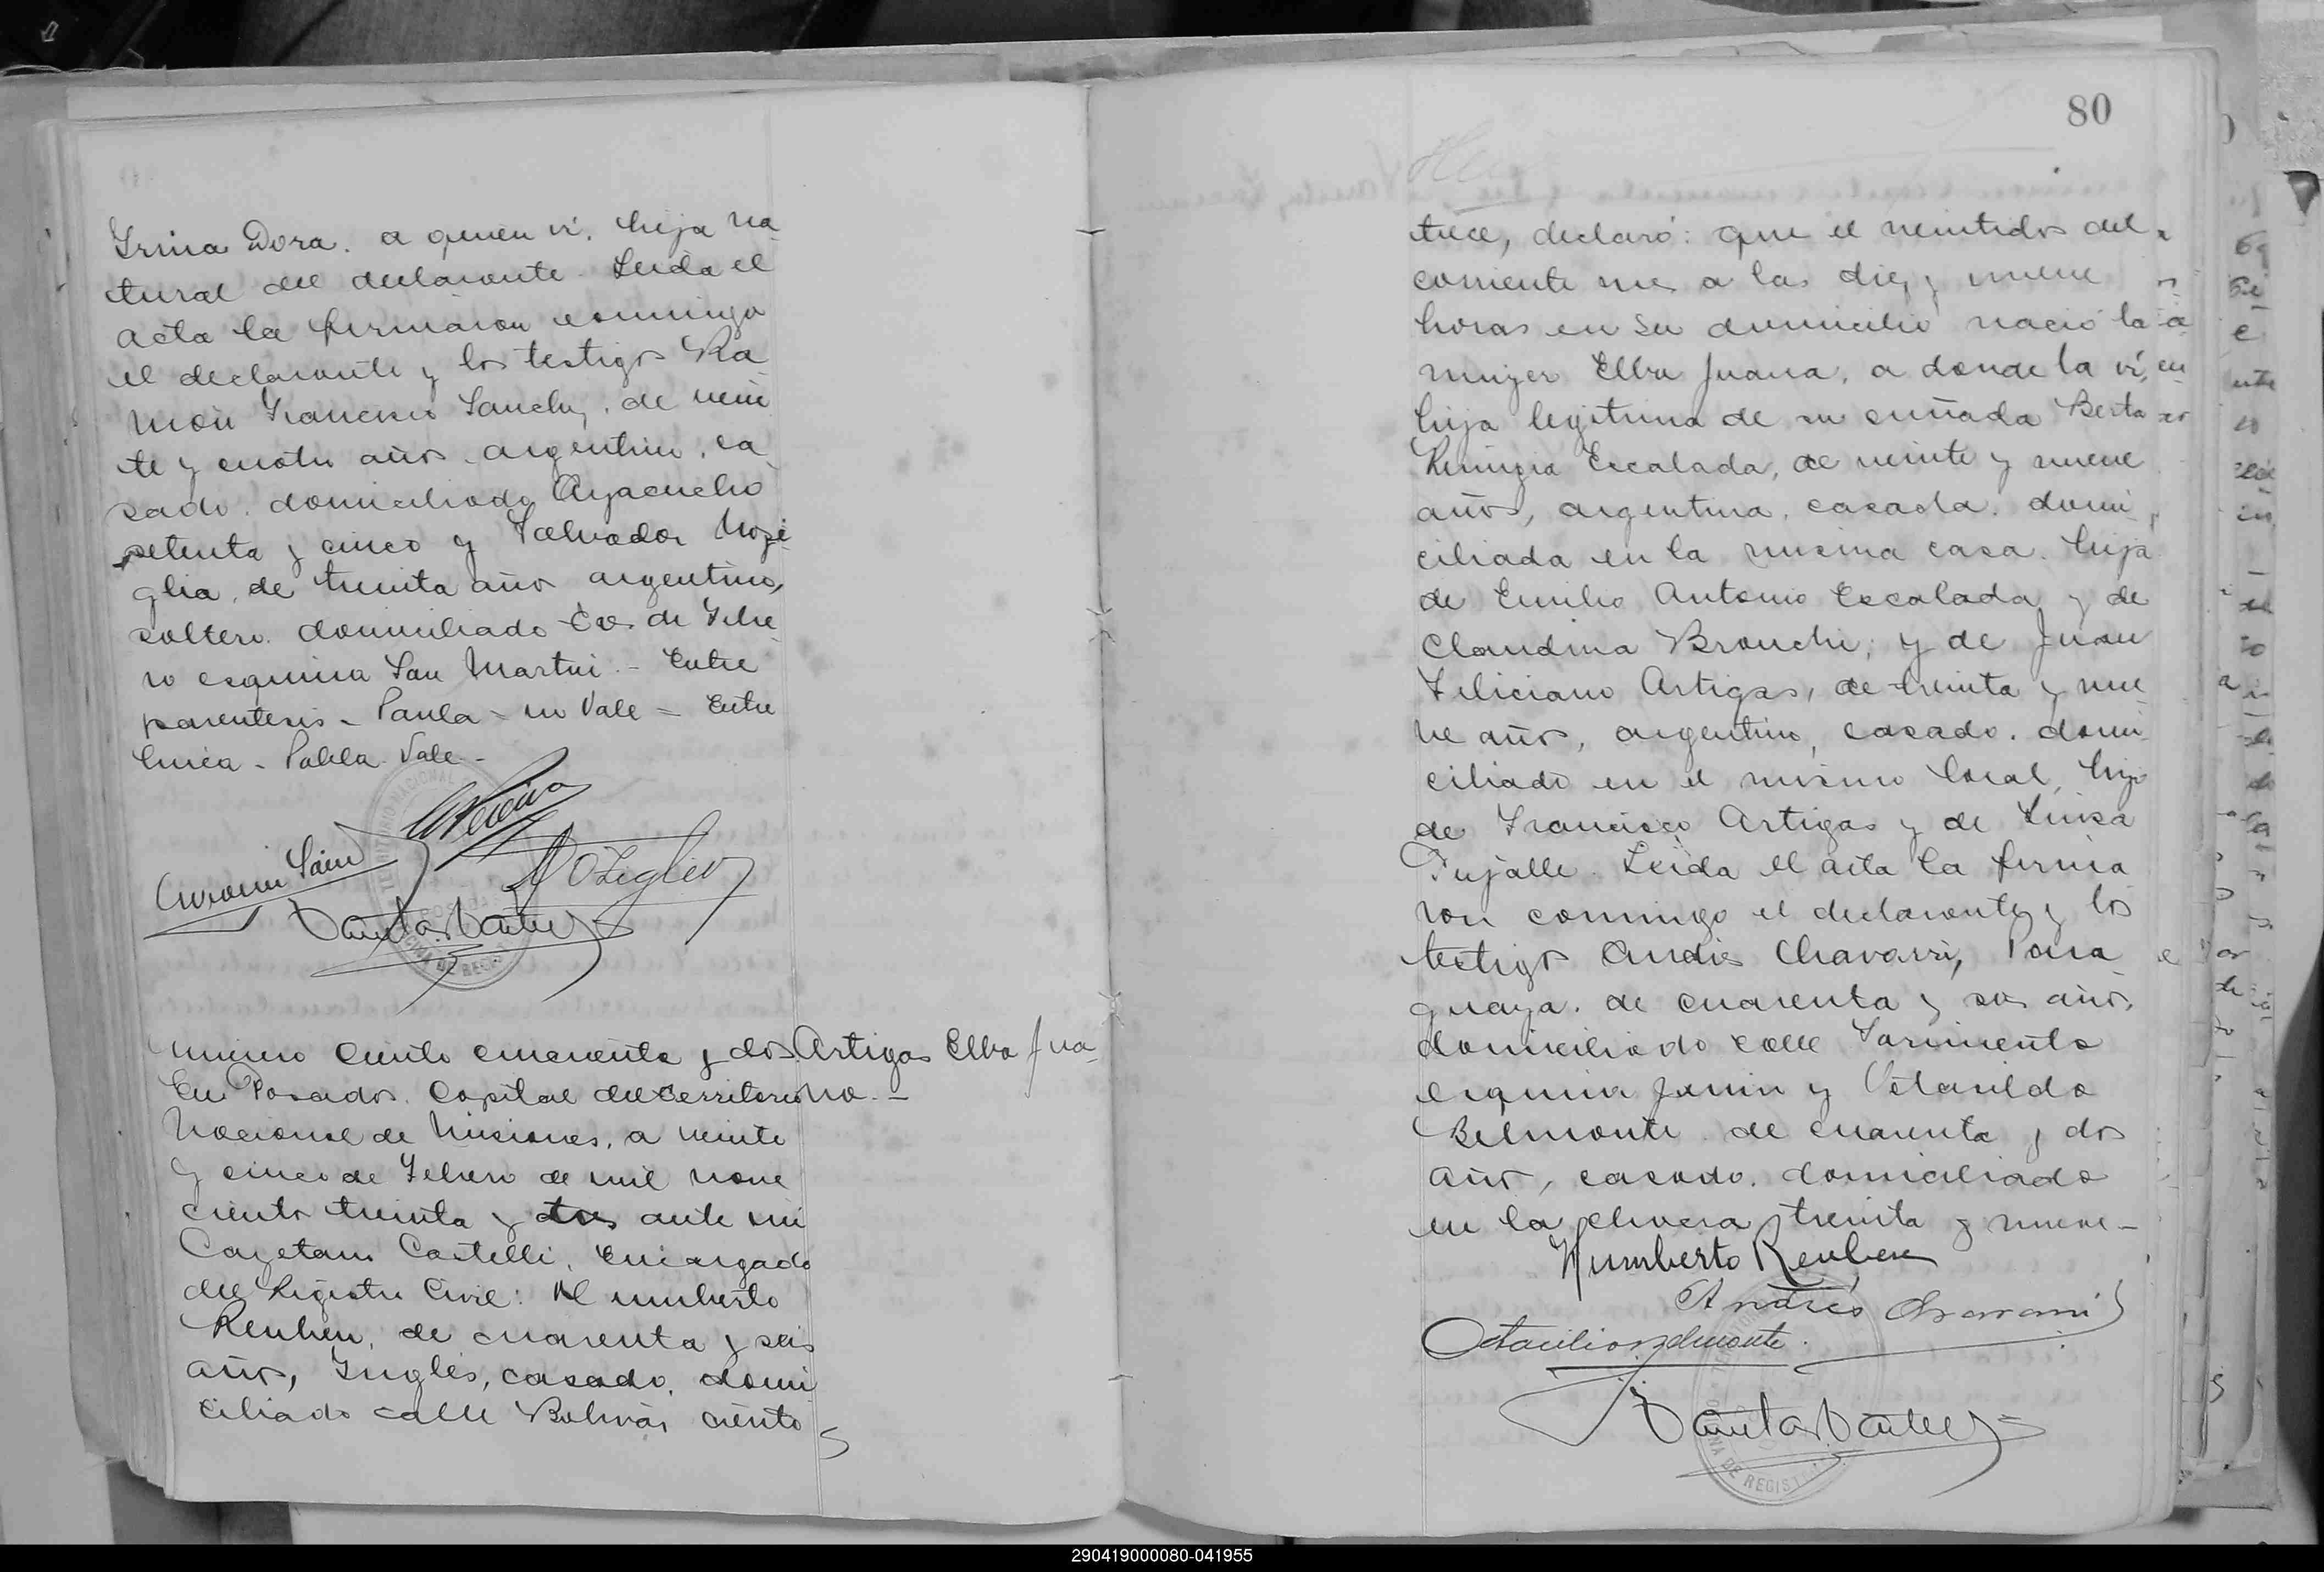 Irma Dora. a quien ví. hija na
tural del declarante. Leida el
acta la firmaron conmigo
el declarante y los testigos Ra
món Francisco Sanchez, de vein
te y cuatro años argentino, ca
sado. domiciliado Ayacucho
setenta y cinco y Salvador Nozi
glia, de treinta años argentino,
soltero. domiciliado de Febre
ro esquina San Martin. - Entre
parentesis - Paula - no Vale - Entre
linea - Pabla Vale -
número ciento cincuenta y dos
Artigas Elba Jua
na. -
En Posadas. Capital del territorio
Nacional de Misiones, a veinte
y cinco de Febrero de mil nove
cientos treinta y tres ante mi
Cayetano Castelli, Encargado
del Registro Civil: Humberto
Reuben, de cuarenta y seis
años, Inglés, casado, domi
ciliado calle Bolivar ciento
80
trece, declaró: que el veintidos del
corriente mes a las diez y nueve
horas en su domicilio nació la
mujer Elba Juana, a donde la ví,
hija legitima de su cuñada Berta
Remigia Escalada, de veinte y nueve
años, argentina, casada. domi
ciliada en la misma casa. hija
de Emilio Antonio Escalada y de
Claudina Bronchi; y de Juan
Feliciano Artigas, de treinta y nue
ve años, argentino, casado. domi
ciliado en el mismo local, hijo
de Francisco Artigas y de Luisa
Pujalle. Leida el acta la firma
ron conmigo el declarante y los
testigos Andrés Chavarri, Para
guayo. de cuarenta y años,
domiciliado calle Sarmiento
esquina Junin y
Belmonte de cuarenta y dos
años, casado. domiciliado
en la chacra treinta y nueve -
Humberto Reuben
Andrés Chavarri
Otacilio Belmonte.
290419000080-041955